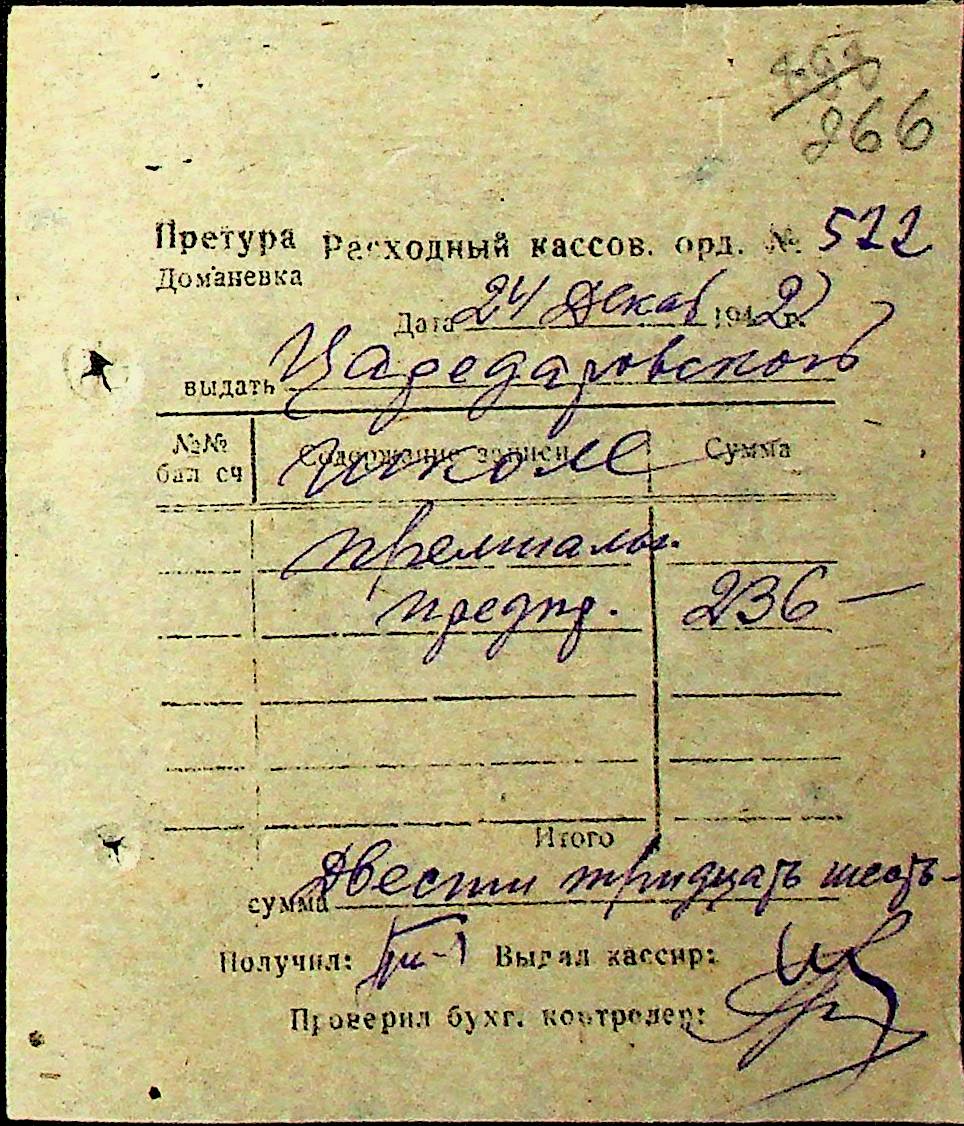 266
Претура Расходный кассов. орд. № 522
Доманевка
Дата 24 Декаб 1942 г.
выдать Царедаровской
№№ бал сч Содержание записи Сумма
школе
предпр. 236 —
Итого
сумма Двести тридцать шесть -
Получил: Выдал кассир:
Проверил бухг. контролер: